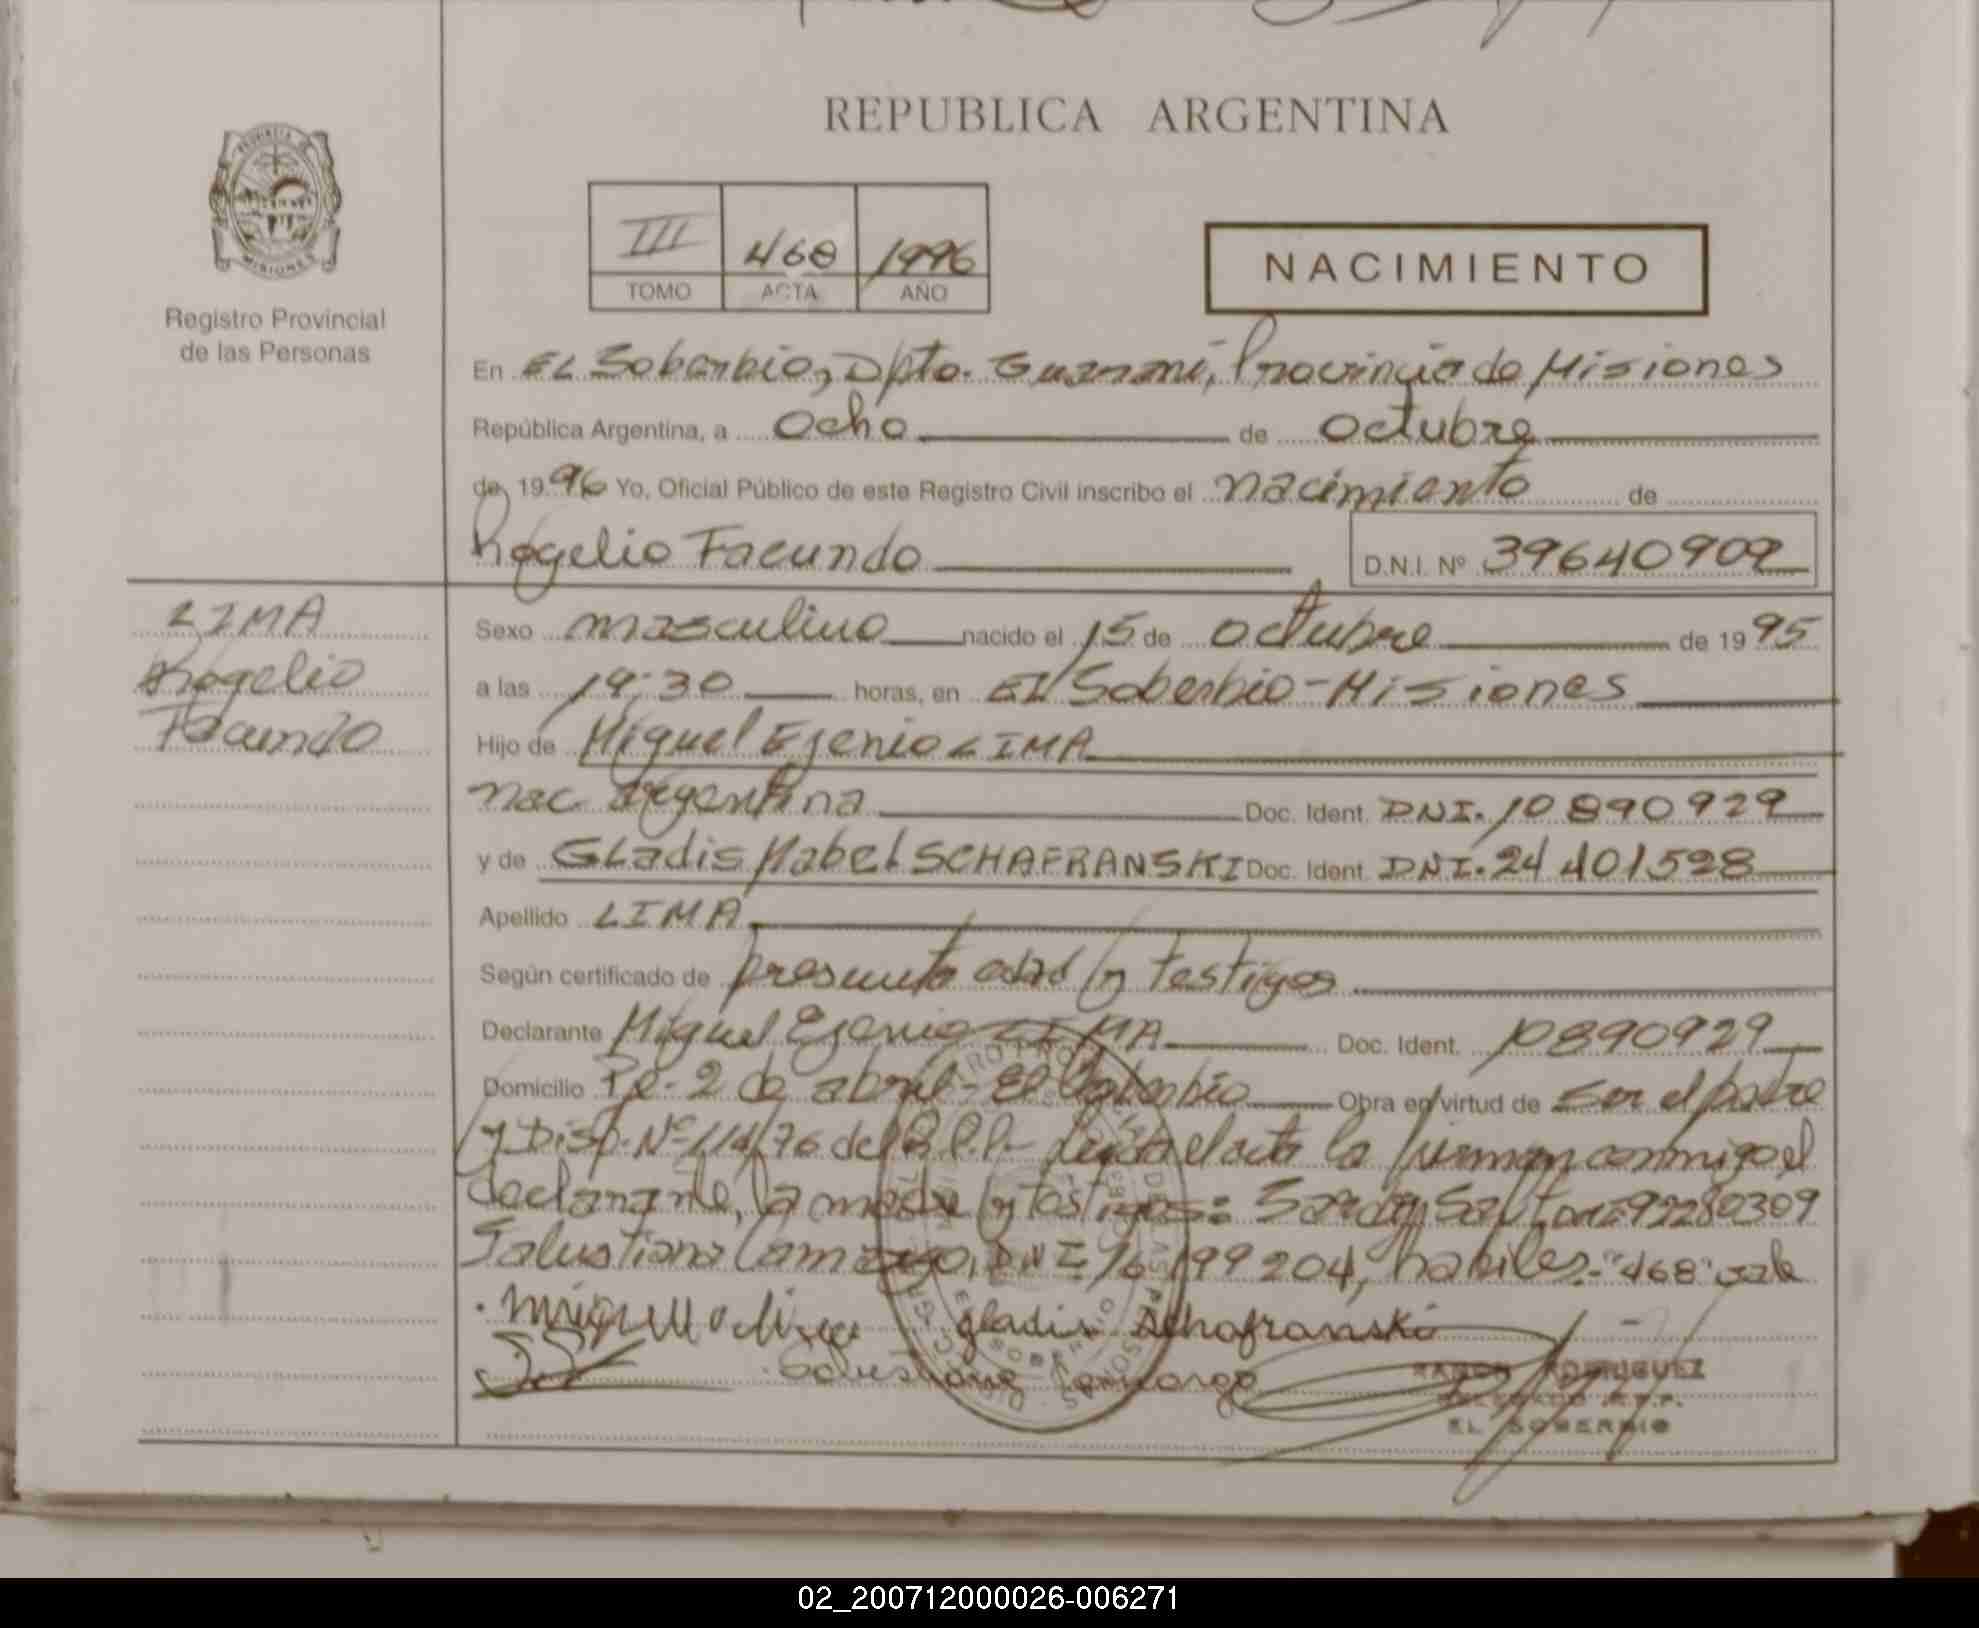 REPUBLICA ARGENTINA
PROVINCIA DE
MISIONES
Registro Provincial
de las Personas
III 468 1996
TOMO ACTA AÑO
NACIMIENTO
En EL Soberbio, Dpto. Guaraní, Provincia de Misiones
República Argentina, a ocho de octubre
de 1996 Yo, Oficial Público de este Registro Civil inscribo el nacimiento de
Rogelio Facundo D.N.I. Nº 39640909
LIMA
Rogelio
Facundo
Sexo masculino nacido el 15 de octubre de 1995
a las 19:30 horas, en El Soberbio - Misiones
Hijo de Miguel Ejenio LIMA
nac. argentina Doc. Ident. DNI. 10 890 929
y de GLadis Mabel SCHAFRANSKI Doc. Ident. DNI. 24 401528
Apellido LIMA
Según certificado de presunta edad y testigos
Declarante Miguel Ejenio LIMA Doc. Ident. 10890929
Domicilio 2 de abril - El Soberbio Obra en virtud de ser el padre
y Disp. Nº 114/76 del R.P.P. Leída el acta la firman conmigo el
declarante, la madre y testigos: 92280309
Salustiana Camargo, DNI 16 199 204, habiles.- "468" vale
gladis schafranski
Salustiana Camargo
RAMON RODRIGUEZ
DELEGADO R.P.P.
EL SOBERBIO
02_200712000026-006271